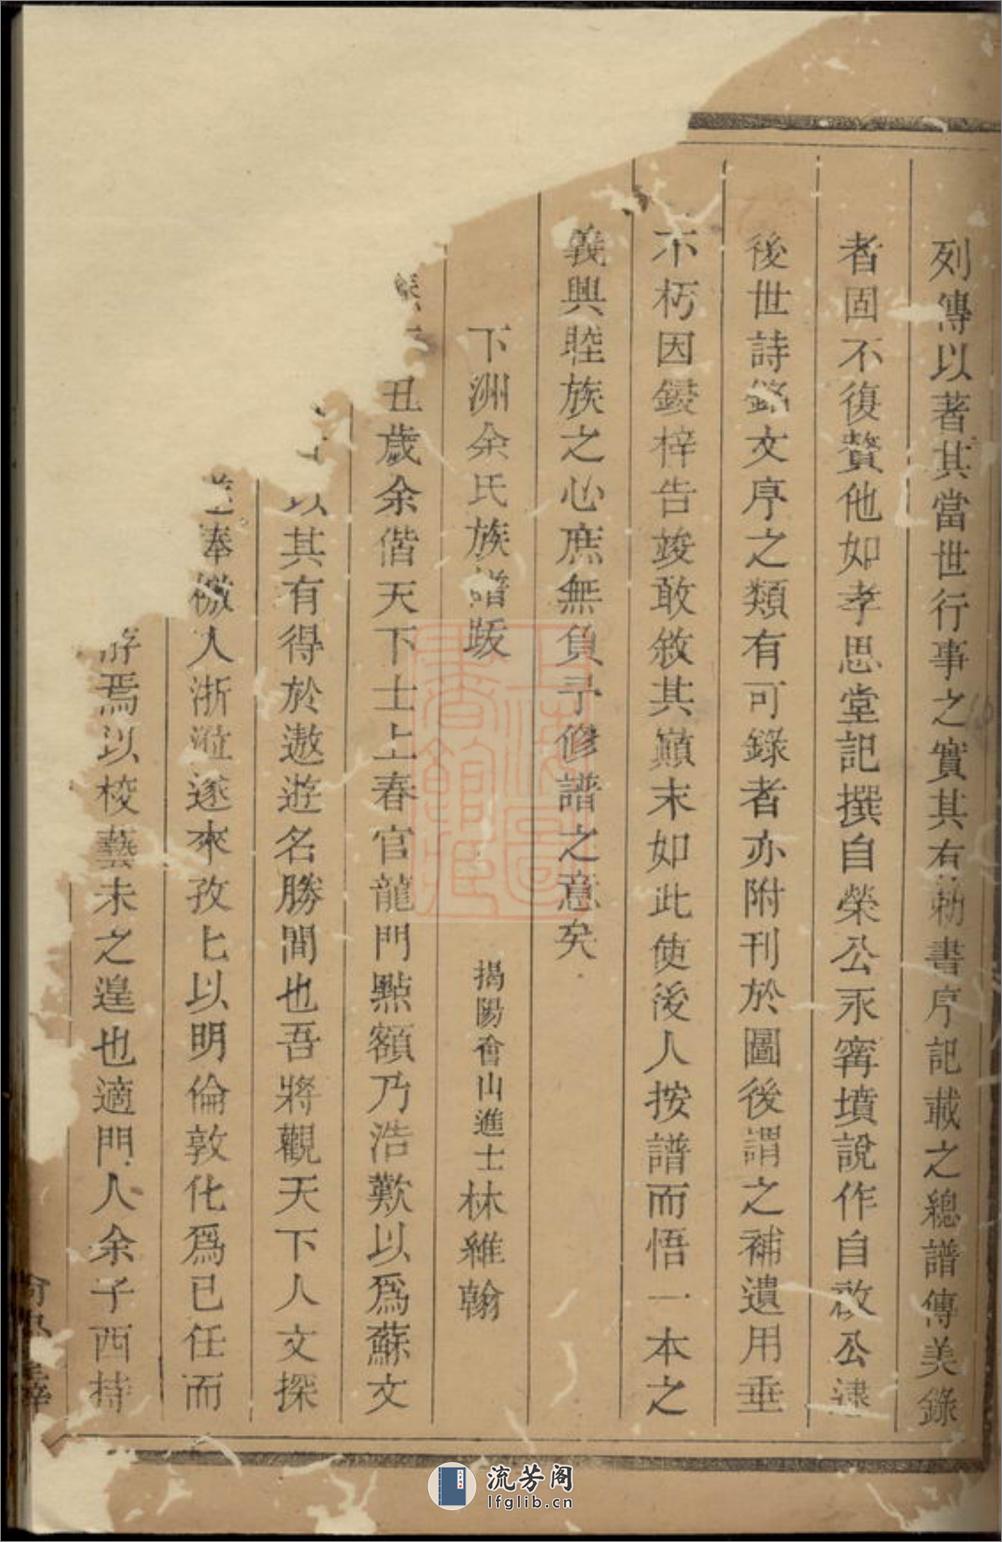 列傳以著其當世行事之實其有勅書序記載之總譜傳美錄
者固不復贅他如孝思堂記撰自榮公永寗墳說作自啟公逮
後世詩銘文序之類有可錄者亦附刊於圖後謂之補遺用垂
不朽因鋟梓告竣敢敘其巔末如此使後人按譜而悟一本之
義興睦族之心庶無負予修譜之意矣
下洲余氏族譜跋
揭陽會山進士林維翰
丑歲余偕天下士上春官龍門點額乃浩歎以爲蘇文
以其有得於遨遊名勝間也吾將觀天下人文探
奉檄人浙涖遂來孜匕以明倫敦化爲已任而
游焉以校藝未之遑也適門人余子西持
流芳阁
lfglib.cn